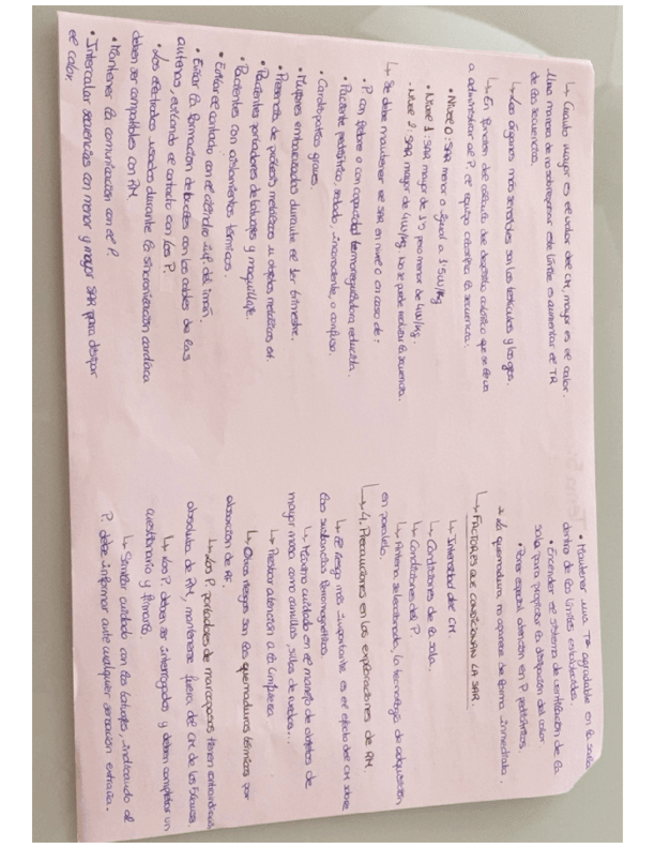 ↳ Cuanto mayor es el valor del CM, mayor es el calor.
Una manera de no sobrepasar este límite es aumentar el TR
de las secuencias.
↳ Los órganos más sensibles son los testículos y los ojos.
↳ En función del cálculo del depósito calórico que se le va
a administrar al P, el equipo la secuencia.
• Nivel 0: SAR menor o igual a 1'5W/Kg
• Nivel 1: SAR mayor de 1'5 pero menor de 4W/Kg.
- Nivel 2: SAR mayor de 4W/Kg. No se puede realizar la secuencia.
↳ Se debe mantener el SAR en nivel 0 en caso de:
• P. con fiebre o con capacidad termorreguladora reducida.
• Paciente pediátrico, sedado, inconsciente, o confuso.
• Cardiopatías graves.
• Mujeres embarazadas durante el 1er trimestre.
• Presencia de prótesis metálicas u objetos metálicos en.
• Pacientes portadores de tatuajes y maquillaje.
• Pacientes con aislamientos térmicos.
• Evitar el contacto con el cilindro del imán.
• Evitar la formación de bucles con los cables de las
antenas, evitando el contacto con los P.
• Los electrodos usados durante la sincronización cardíaca
deben ser compatibles con RM.
• Mantener la comunicación con el P.
• Intercalar secuencias con menor y mayor SAR para disipar
el calor.
• Mantener una Tª agradable en la sala
dentro de los límites establecidos.
• Encender el sistema de ventilación de la
sala para propiciar la disipación del calor
• Poner especial atención en P pediátricos.
* La quemadura no aparece de forma inmediata.
↳ FACTORES QUE CONDICIONAN LA SAR.
↳ Intensidad del CM.
↳ Condiciones de la sala.
↳ Condiciones del P.
↳ Antena seleccionada, la tecnología de adquisición
en paralelo.
↳ 4. Precauciones en las exploraciones de RM.
↳ El riesgo más importante es el efecto del CM sobre
las sustancias ferromagnéticas
↳ Máximo cuidado en el manejo de objetos de
mayor masa como camillas, sillas de ruedas...
↳ Prestar atención a la limpieza
↳ Otros riesgos son las quemaduras térmicas por
absorción de RF.
↳ Los P. portadores de marcapasos tienen
absoluta de RM, mantenerse fuera del CM de las 5 Gauss.
↳ Los P. deben ser interrogados y deben completar un
cuestionario y firmarlo.
↳ cuidado con los tatuajes, indicando al
P. debe informar ante cualquier sensación extraña.